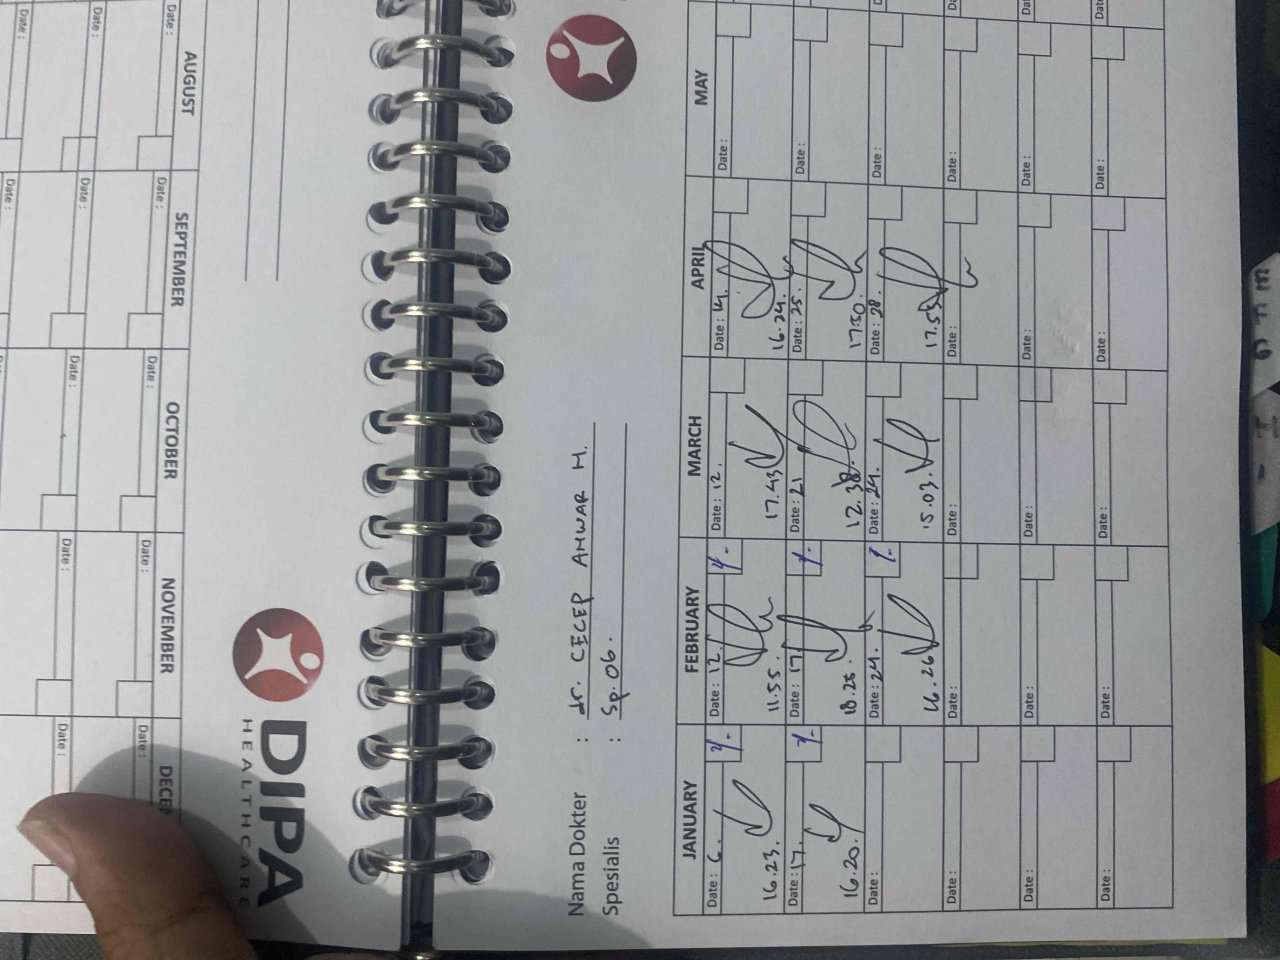 Nama Dokter : dr. CECEP ANWAR H.
Spesialis : Sp. OG.
JANUARY FEBRUARY MARCH APRIL MAY
Date: 6. Date: 12. Date: 12. Date: 14. Date:
16.23. 11.55 17.43 16.24.
Date: 17. Date: 17 Date: 21 Date: 25. Date:
16.20. 18.25. 12.38. 17.50.
Date: Date: 24. Date: 24. Date: 28. Date:
16.26 15.03. 17.55
Date: Date: Date: Date: Date:
Date: Date: Date: Date: Date:
Date: Date: Date: Date: Date:
DIPA
HEALTHCARE
AUGUST SEPTEMBER OCTOBER NOVEMBER
Date: Date: Date: Date: Date:
Date: Date: Date: Date: Date:
Date: Date: